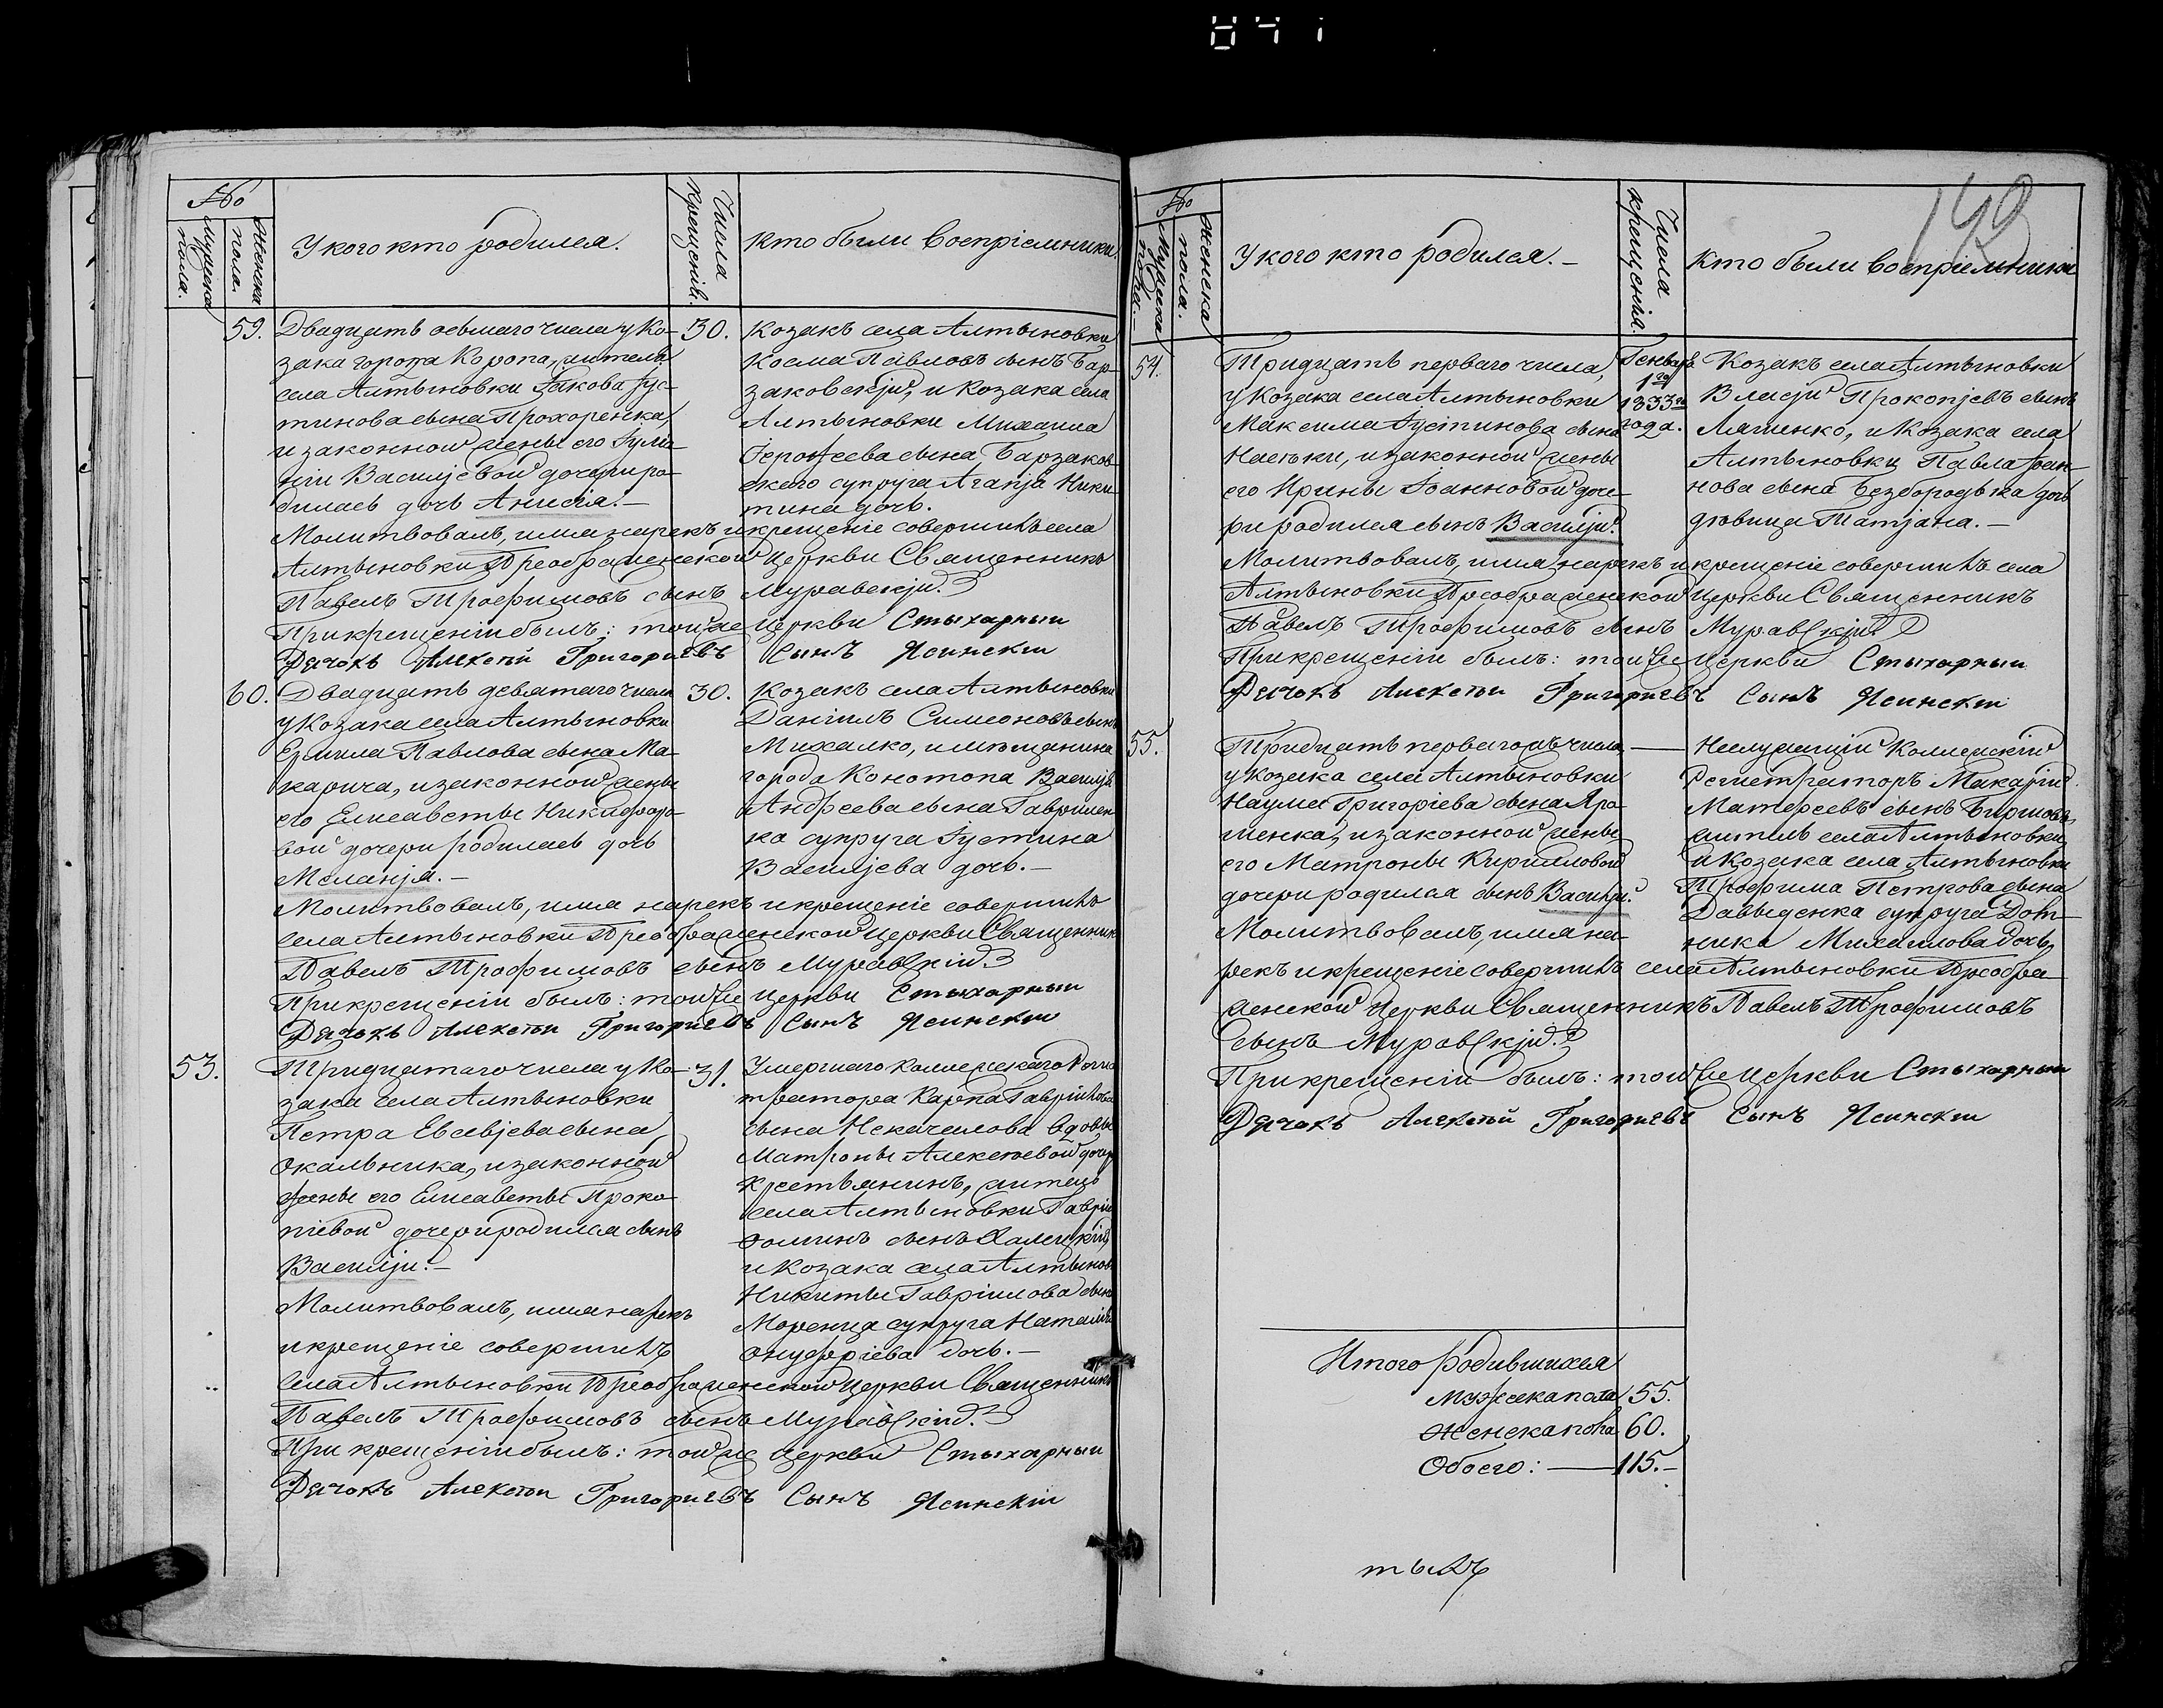 №
Мужеска пола.
Женска пола.
У кого кто родился.
Числа крещенія.
Кто были воспріемники.
59.
Двадцать осьмаго числа у Ко-
зака города Коропа, жителя
села Алтыновки Іакова Іус-
тинова сына Прохоренка,
и законной жены его Іулі-
аніи Василіевой дочери ро-
дилась дочь Анисія.-
30.
Козакъ села Алтыновки
Косма Павловъ сынъ Бар-
заковскій, и Козака села
Алтыновки Михаила
Іерофеева сына Барзаков-
скаго супруга Агапія Ники-
тина дочь.
Молитвовалъ, имя нарекъ и крещеніе совершилъ села
Алтыновки Преображенской Церкви Священникъ
Павелъ Трофимовъ сынъ Муравскій.
При крещеніи былъ: той же Церкви Стихарный
Дячокъ Алексѣй Григориевъ Сынъ Ясинскій
60.
Двадцать девятаго числа
у Козака села Алтыновки
Ермила Павлова сына Ма-
карича, и законной жены
его Елисаветы Никифоро-
вой дочери родилась дочь
Меланія.-
30.
Козакъ села Алтыновки
Даніилъ Симеоновъ сынъ
Михалко, и мѣщанина
города Конотопа Василія
Андреева сына Гаврилен-
ка супруга Іустина
Василіева дочь.-
Молитвовалъ, имя нарекъ и крещеніе совершилъ
села Алтыновки Преображенской Церкви Священникъ
Павелъ Трофимовъ сынъ Муравскій
При крещеніи былъ: той же Церкви Стихарный
Дячокъ Алексѣй Григориевъ Сынъ Ясинскій
53.
Тридцатаго числа у Ко-
зака села Алтыновки
Петра Евсевіева сына
Окальника, и законной
жены его Елисаветы Проко-
піевой дочери родился сынъ
Василій.-
31.
Умершаго Коллежскаго Регис-
тратора Карпа Гавріилова
сына вдовы
Матроны Алексѣевой дочери
Крестьянинъ, житель
села Алтыновки Гавріилъ
Фоминъ сынъ
и Козака села Алтыновки
Никиты Гавріилова сына
супруга Наталія
Онуфріева дочь.-
Молитвовалъ, имя нарекъ
и крещеніе совершилъ
села Алтыновки Преображенской Церкви Священникъ
Павелъ Трофимовъ сынъ Муравскій.
При крещеніи былъ: той же Церкви Стихарный
Дячокъ Алексѣй Григориевъ Сынъ Ясинскій
№
Мужеска пола.
Женска пола.
У кого кто родился.-
Числа крещенія.
Кто были воспріемники
54.
Тридцать перваго числа,
у Козака села Алтыновки
Максима Іустинова сына
его Ирины Іоанновой доче-
ри родился сынъ Василій.
Генваря
1го
1833го
года.
Козакъ села Алтыновки
Власій Прокопіевъ сынъ
Ляшенко, и Козака села
Алтыновки Павла Іоан-
нова сына Безбородька дочь
дѣвица Татіана.-
Молитвовалъ, имя нарекъ и крещеніе совершилъ села
Алтыновки Преображенской Церкви Священникъ
Павелъ Трофимовъ сынъ Муравскій
При крещеніи былъ: той же Церкви Стихарный
Дячокъ Алексѣй Григориевъ Сынъ Ясинскій
55.
Тридцать перваго числа
у Козака села Алтыновки
Наума Григоріева сына Яро-
шенка, и законной жены
его Матроны Кирилловой
дочери родился сынъ Василій.
Неслужащій Коллежскій
Регистраторъ Макарій
Матѳеевъ сынъ
житель села Алтыновки,
и Козака села Алтыновки
Трофима Петрова сына
Давыденка супруга Дом-
ника Михаилова дочь,
Молитвовалъ, имя на-
рекъ и крещеніе совершилъ села Алтыновки Преобра-
женской Церкви Священникъ Павелъ Трофимовъ
сынъ Муравскій.
При крещеніи былъ: той же Церкви Стихарный
Дячокъ Алексѣй Григориевъ Сынъ Ясинскій
Итого родившихся
Мужеска пола 55.
Женска пола 60.
Обоего: — 115.-